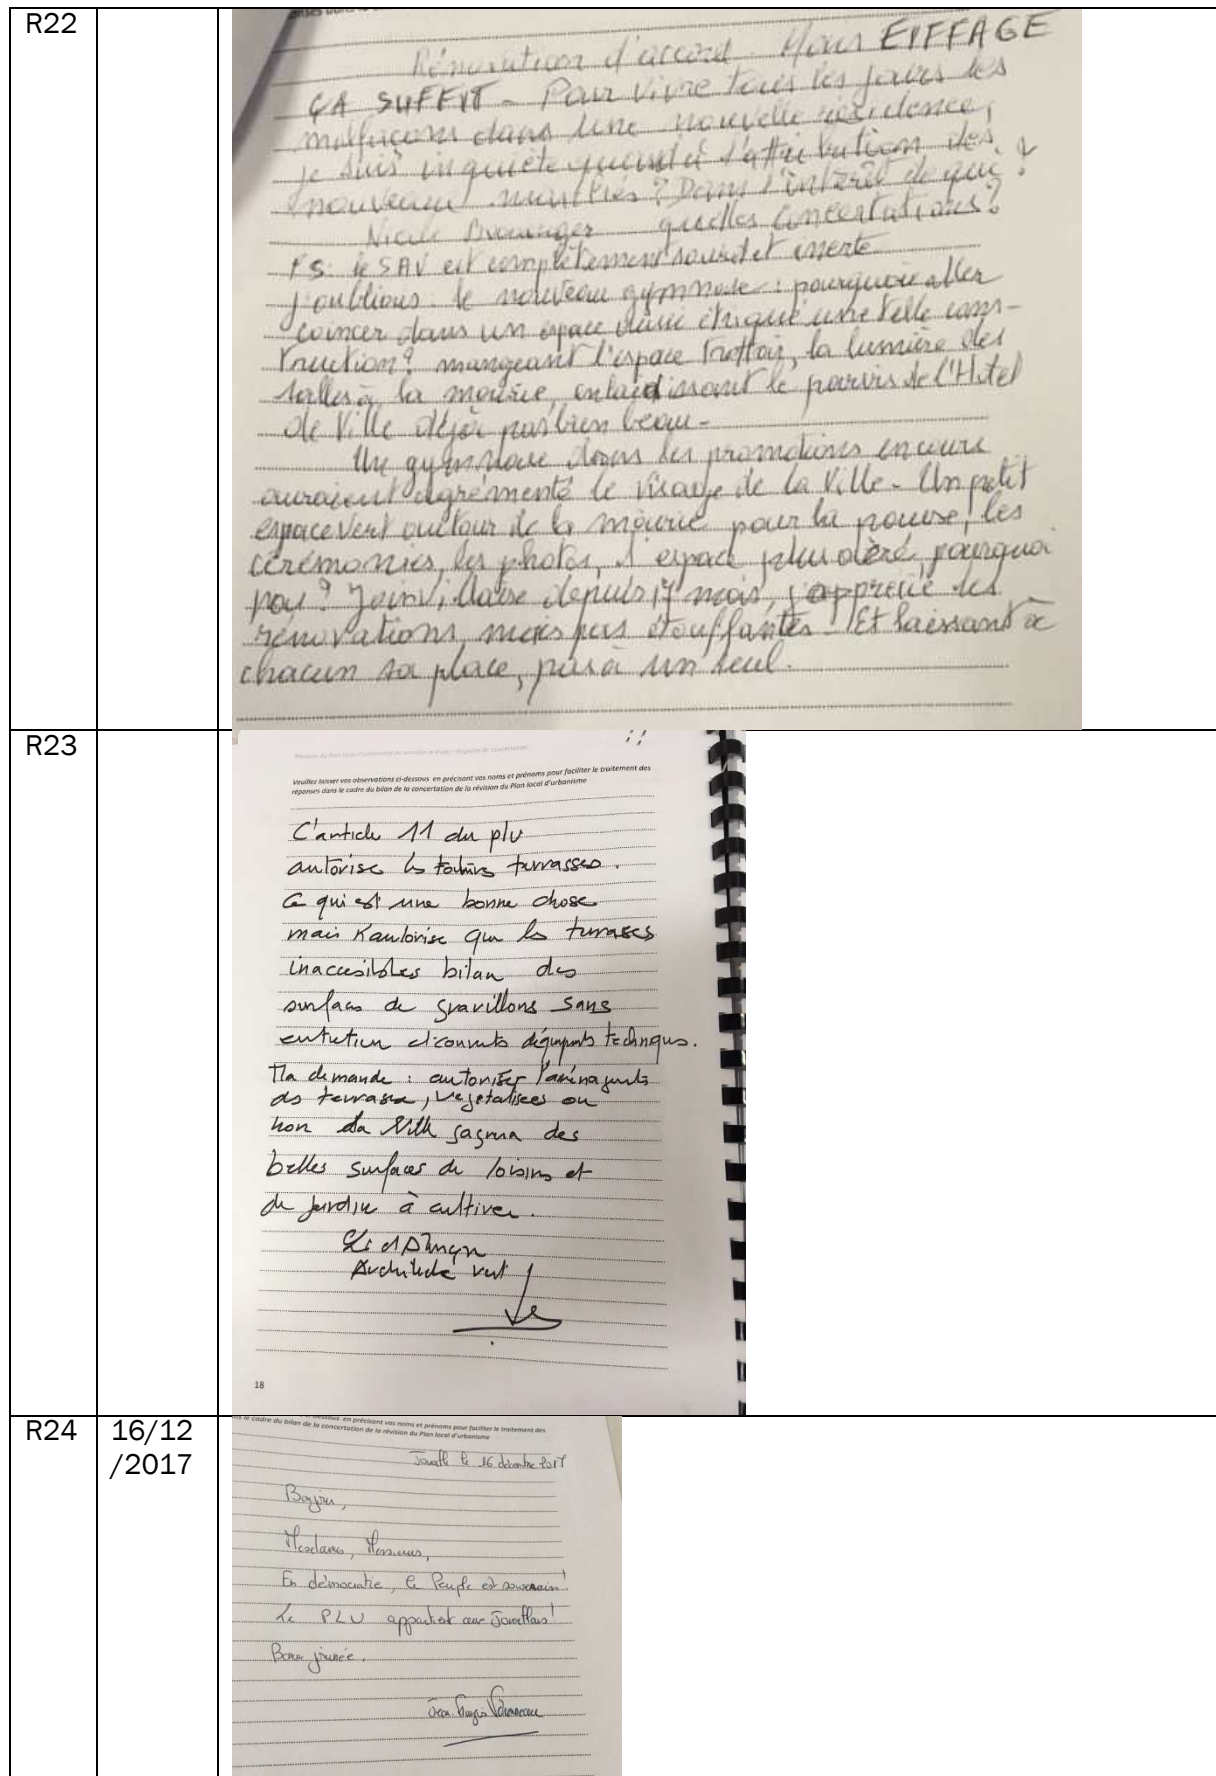 R22
Rénovation d'accord. Mais EIFFAGE
ÇA SUFFIT - Pour vivre tous les jours les
malfaçons dans une nouvelle résidence,
je suis inquiète quand à l'attribution des
nouveaux marchés ? Dans l'intérêt de qui ?
Nicole quelles concertations ?
PS: le SAV est complètement sourd et inerte
J'oubliais : le nouveau gymnase : pourquoi aller
coincer dans un espace aussi étriqué une telle cons-
truction ? mangeant l'espace trottoir, la lumière des
salles à la mairie, enlaidissant le parvis de l'Hotel
de Ville déjà pas bien beau -
Un gymnase dans les promotions en cours
auraient agrémenté le visage de la Ville - Un petit
espace vert autour de la mairie pour la pause, les
cérémonies, les photos, l'espace plus aéré, pourquoi
pas ? Joinvillaise depuis 17 mois, j'apprécie les
rénovations, mais pas étouffantes ! Et laissant à
chacun sa place, pas à un seul.
R23
Veuillez laisser vos observations ci-dessous en précisant vos noms et prénoms pour faciliter le traitement des
réponses dans le cadre du bilan de la concertation de la révision du Plan local d'urbanisme
L'article 11 du plu
autorise les toitures terrasses.
Ce qui est une bonne chose
mais n'autorise que les terrasses
inaccessibles bilan des
surfaces de gravillons sans
entretien et couverts d'équipements techniques.
Ma demande : autoriser l'aménagements
des terrasse, végétalisées ou
non la Ville gagnera des
belles surfaces de loisirs et
de jardin à cultiver.
Architecte
18
R24
16/12
/2017
dans le cadre du bilan de la concertation de la révision du Plan local d'urbanisme
en précisant vos noms et prénoms pour faciliter le traitement des
le 16 décembre 2017
Bonjour,
Mesdames, Messieurs,
En démocratie, le Peuple est souverain !
Le PLU appartient aux Joinvillais !
Bonne journée.
Jean-François